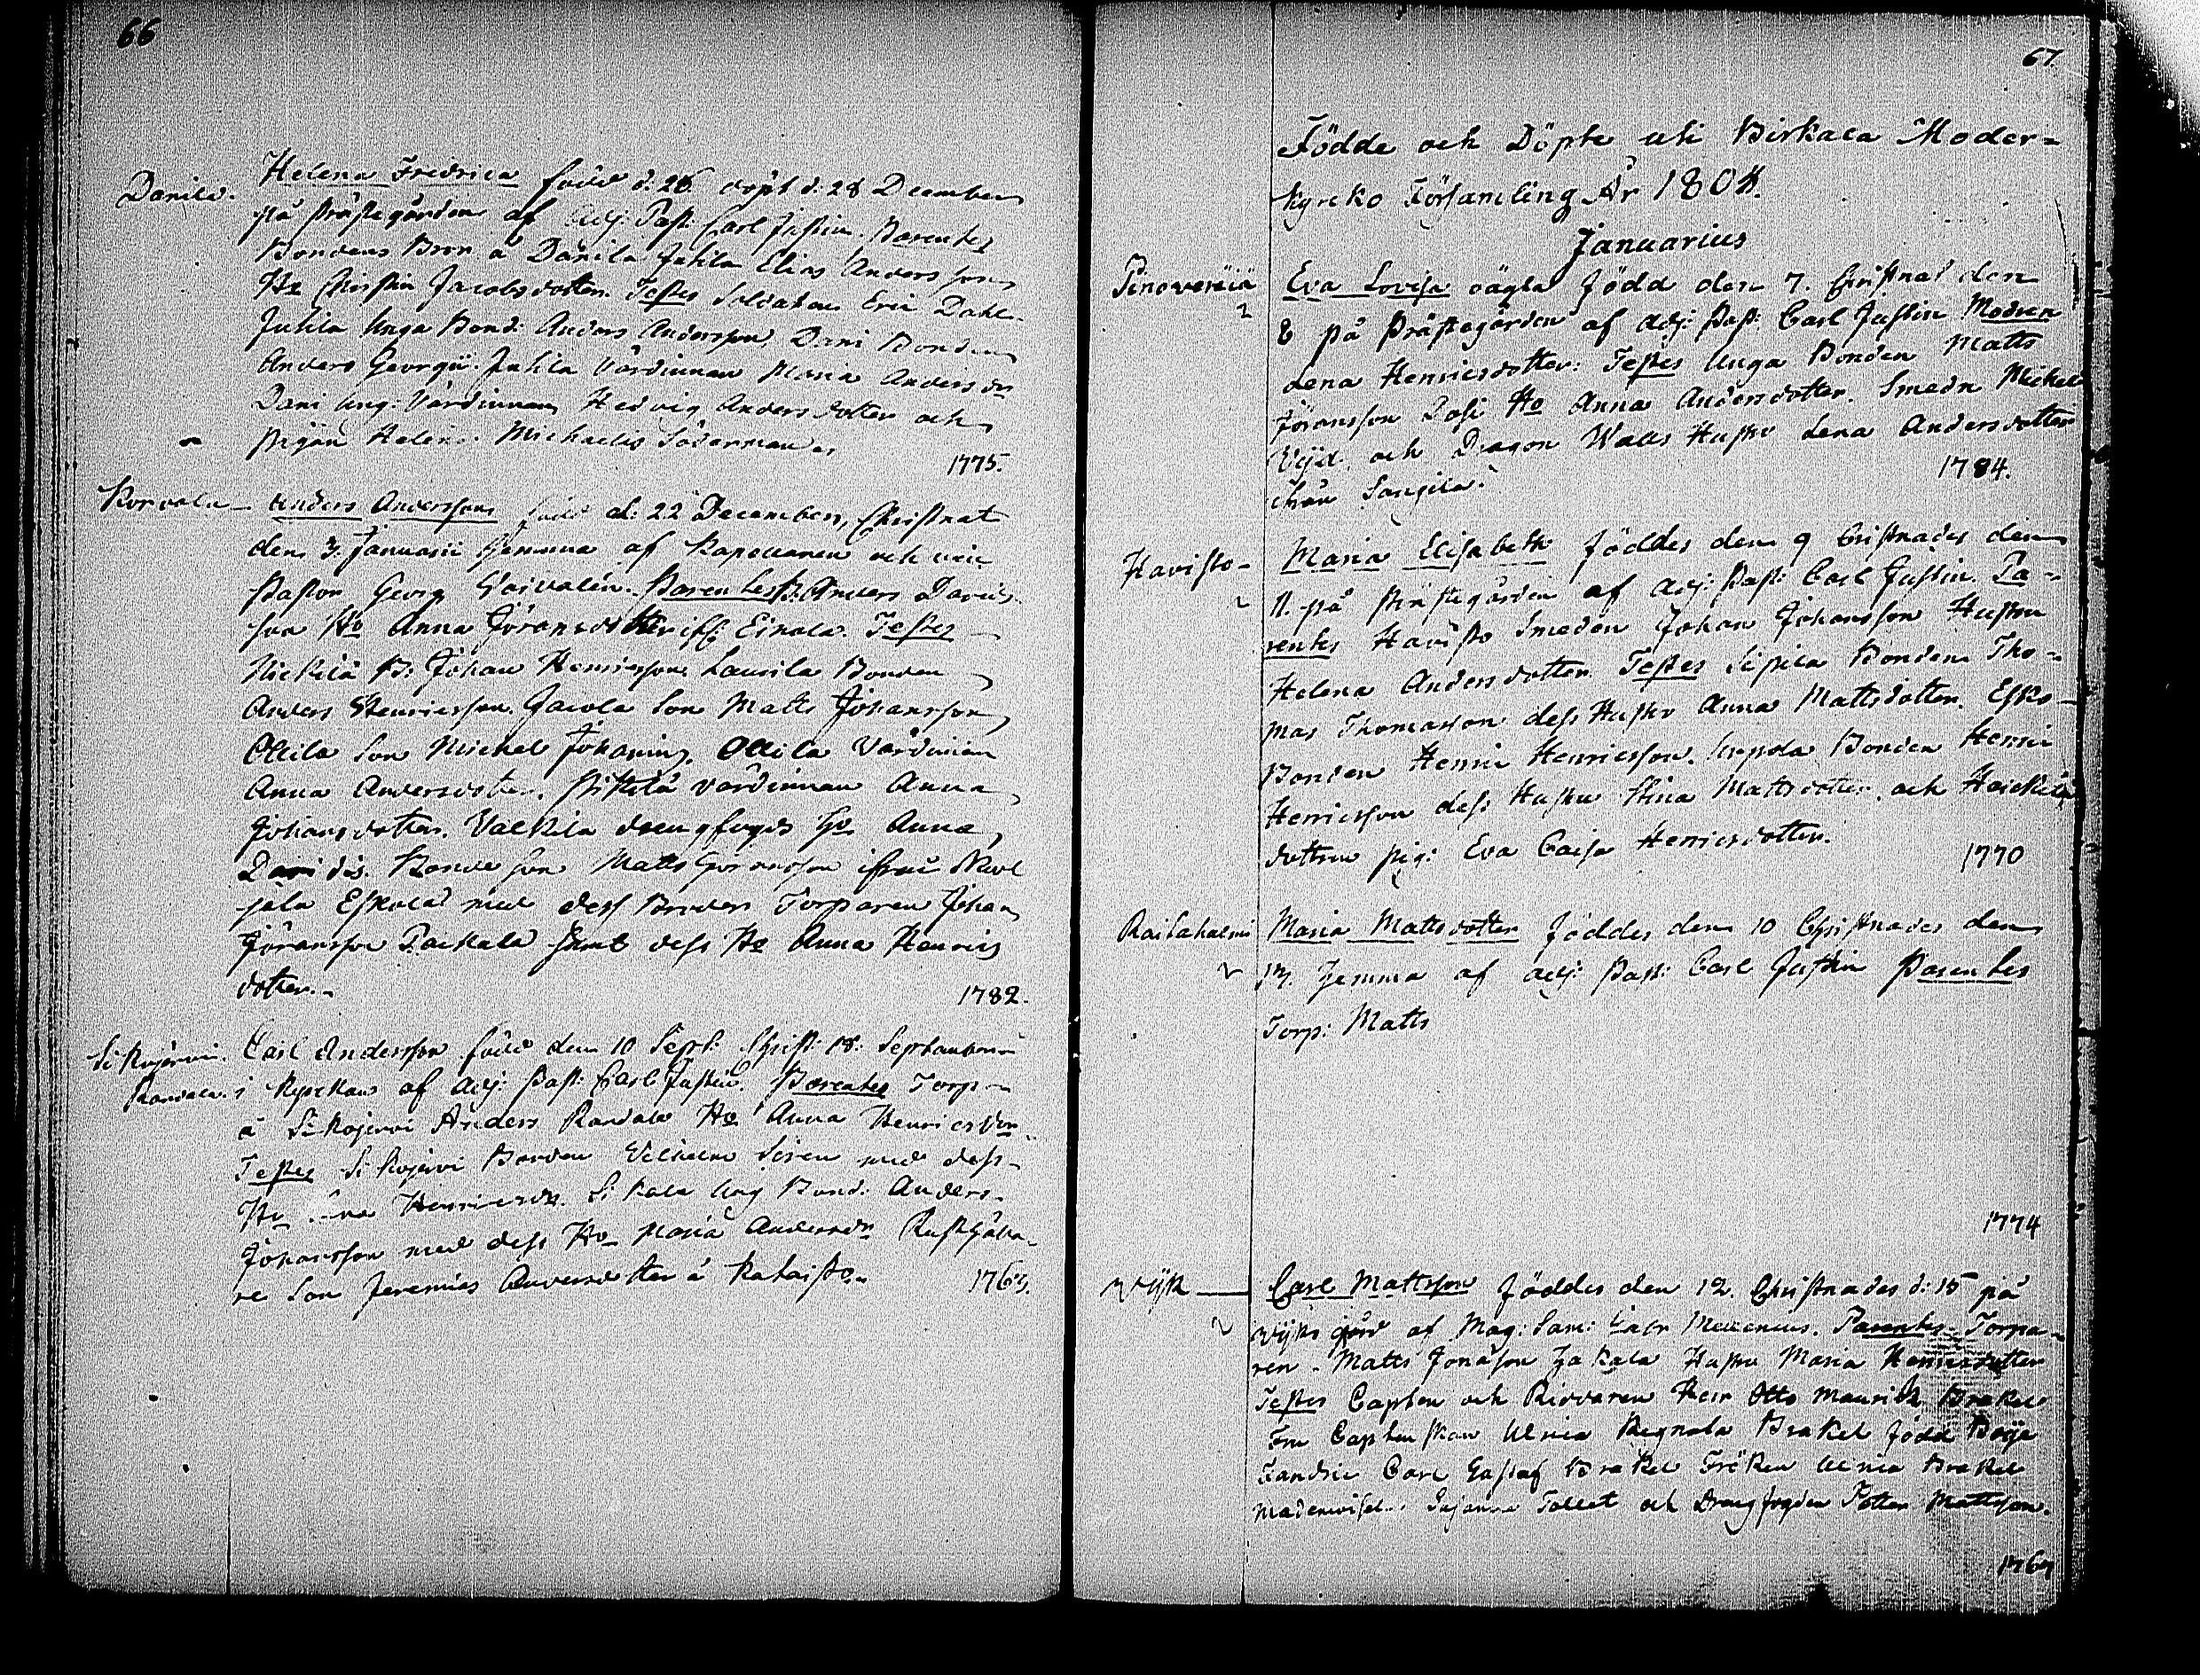 66
Danila. Helena Fredrica född d: 26 döpt d: 28 December
på Prästegården af Adj: Past: Carl Justin. Parentes
Bondens Bror å Danila Juhla Elias Andersson
Ho Christin Jacobsdotter. Testes Soldaten Eric Dahl
Juhla Unga Bond: Anders Andersson, Dani Bonden
Anders Georgii. Juhla Värdinnan Maria Andersdr
Dani Ung: Värdinnan Hedvig Andersdotter och
pigan Helena Michaelis Söderman
1775.
Korvola Anders Andersson född d: 22 December, Christnat
den 3. Januarii hemma af Capellanen och vice
Pastor Georg. Parentes B. Anders Davids
son Ho Anna Göransdotter ifr: Einola. Testes
Nickilä B: Johan Henricsson, Laurila Bonden
Anders Henricsson. Jacola Son Matts Johansson,
Ollila Son Michel Johannis. Ollila Värdinnan
Anna Andersdotter. värdinnan Anna
Johansdotter. Valkila drengfogds Ho Anna
Davidis. Bonde son Matts Göransson ifrån
Eskola med dess Broder Torparen Johan
Göransson samt dess Ho Anna Henrics
dotter.
1782.
Sikojärvi Carl Andersson född den 10 Sept: Christ: 18: September
i Kyrckan af Adj: Past: Carl Justin. Parentes Torp
å Sikojervi Anders Ho Anna Henricsdr
Testes Sikojärvi Bonden Vilhelm Siren med dess
Ho Henricsdr. Sikala Ung Bond: Anders
Johansson med dess Ho Maria Andersdr Rusthålla
re Son Jeremias Andersdotter å
1763.
67.
Födde och Döpte uti Birkala Moder=
kyrcko Församling År 1804.
Januarius
Pinovereiä Eva Lovisa oägta Född den 7. Christnat den
8 på Prästegården af Adj: Past: Carl Justin Modren
Lena Henricsdotter: Testes Unga Bonden Matts
Jöransson Pasi Ho Anna Andersdotter. Smedn Michel
och Dragon Walls Hustru Lena Andersdotter
från
1784.
Havisto Maria Elisabeth föddes den 9 Cristnades den
11. på Prästegården af Adj: Past: Carl Justin. Pa=
rentes Havisto Smeden Johan Johansson Hustru
Helena Andersdotter. Testes Bonden Tho=
mas Thomasson dess Hustru Anna Mattsdotter. Esko
Bonden Henric Henricsson. Bonden Henric
Henricsson dess Hustru Stina Mattsdotter. och
dottren pig: Eva Caisa Henricsdotter.
1770
Raitahalmi Maria Mattsdotter föddes den 10 Christnades den
hemma af Adj: Past: Carl Justin Parentes
Torp: Matts
1774
Wijk Carl Mattsson föddes den 12. Christnades d: 15 på
Wijks gård af Mag: Sam: Mellenius. Parentes Torpa=
ren Matts Jonasson Hustru Maria Henricsdotter
Testes Capten och Riddaren Herr Otto Maurits Brakel
Fru Captenskan Ulrica Regnala Brakel född Boije
Fändric Carl Gustaf Brakel Fröken Ulrica Brakel
Madmoisel Susanna Tollet och Drengfogden Petter Mattsson.
1767